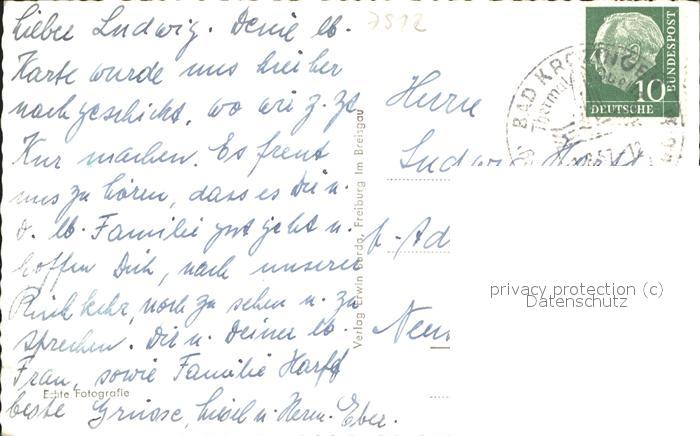 7812
Lieber Ludwig. Deine lb.
Karte wurde uns hieher
nachgeschickt, wo wir z. Zt
Kur machen. Es freut
uns zu hören, dass es Dir u.
d. lb. Familie gut geht u.
hoffen Dich, nach unserer
Rückkehr, noch zu sehen u. zu
sprechen. Dir u. Deiner lb.
Frau, sowie Familie Harff
beste Grüsse, Liesel u. Herm. Eber.
Echte Fotografie
Verlag Erwin Burda, Freiburg im Breisgau
BAD KROZINGEN
Thermal
57-12
10
DEUTSCHE
BUNDESPOST
Herrn
Ludwig
privacy protection (c)
Datenschutz